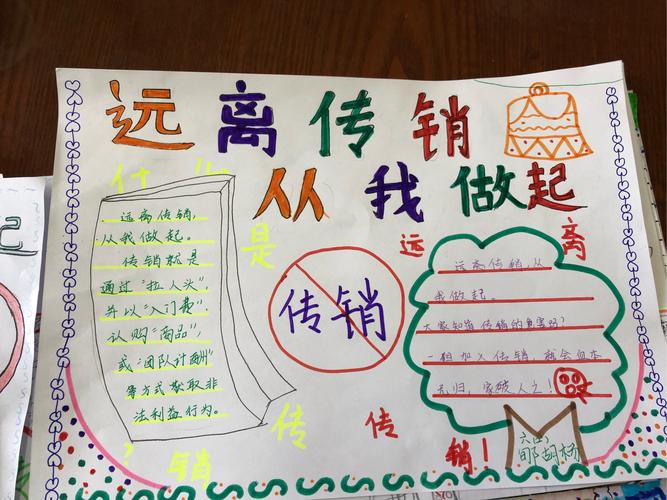 远离传销
从我做起
什么
是
传
销
?
远离传销,
从我做起。
传销就是
通过“拉人头”,
并以“入门费”
认购“商品”,
或“团队计酬”
等方式获取非
法利益行为。
传销
远
离
传
销!
远离传销,从
我做起。
大家知道传销的危害吗?
一旦加入传销,就会血本
无归,家破人亡!